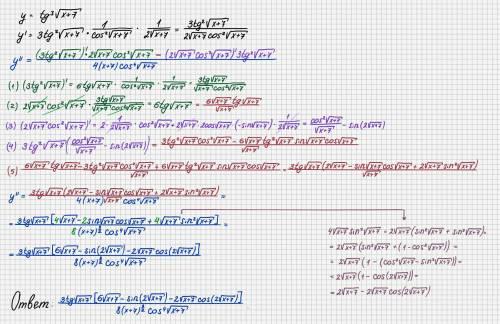 y = tg³√(x+7)
y' = 3tg²√(x+7) · 1/cos²√(x+7) · 1/2√(x+7) = 3tg²√(x+7) / 2√(x+7) cos²√(x+7)
y'' = ((3tg²√(x+7))' · 2√(x+7) cos²√(x+7) − (2√(x+7) cos²√(x+7))' 3tg²√(x+7)) / 4(x+7) cos⁴√(x+7)
(1) (3tg²√(x+7))' = 6tg√(x+7) · 1/cos²√(x+7) · 1/2√(x+7) = 3tg√(x+7) / √(x+7) cos²√(x+7)
(2) 2√(x+7) cos²√(x+7) · 3tg√(x+7) / √(x+7) cos²√(x+7) = 6tg√(x+7) = 6√(x+7) tg√(x+7) / √(x+7)
(3) (2√(x+7) cos²√(x+7))' = 2 · 1/2√(x+7) · cos²√(x+7) + 2√(x+7) · 2cos√(x+7) (−sin√(x+7)) · 1/2√(x+7) = cos²√(x+7)/√(x+7) − sin(2√(x+7))
(4) 3tg²√(x+7) (cos²√(x+7)/√(x+7) − sin(2√(x+7))) = (3tg²√(x+7) cos²√(x+7) − 6√(x+7) tg²√(x+7) sin√(x+7) cos√(x+7)) / √(x+7)
(5) (6√(x+7) tg√(x+7) − 3tg²√(x+7) cos²√(x+7) + 6√(x+7) tg²√(x+7) sin√(x+7) cos√(x+7)) / √(x+7) = 3tg√(x+7) (2√(x+7) − sin√(x+7) cos√(x+7) + 2√(x+7) sin²√(x+7)) / √(x+7)
y'' = 3tg√(x+7) (2√(x+7) − sin√(x+7) cos√(x+7) + 2√(x+7) sin²√(x+7)) / 4(x+7) √(x+7) cos⁴√(x+7) =
= 3tg√(x+7) [4√(x+7) − 2sin√(x+7) cos√(x+7) + 4√(x+7) sin²√(x+7)] / 8(x+7)^(3/2) cos⁴√(x+7) =
= 3tg√(x+7) [6√(x+7) − sin(2√(x+7)) − 2√(x+7) cos(2√(x+7))] / 8(x+7)^(3/2) cos⁴√(x+7)
4√(x+7) sin²√(x+7) = 2√(x+7) (sin²√(x+7) + sin²√(x+7)) =
= 2√(x+7) (sin²√(x+7) + (1 − cos²√(x+7))) =
= 2√(x+7) (1 − (cos²√(x+7) − sin²√(x+7))) =
= 2√(x+7) (1 − cos(2√(x+7))) =
= 2√(x+7) − 2√(x+7) cos(2√(x+7))
Ответ: 3tg√(x+7) [6√(x+7) − sin(2√(x+7)) − 2√(x+7) cos(2√(x+7))] / 8(x+7)^(3/2) cos⁴√(x+7)